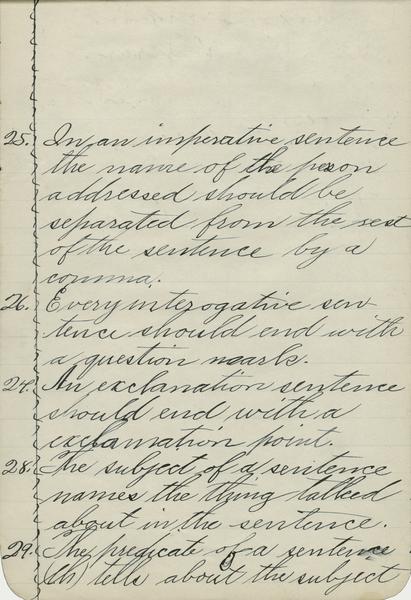 25. In an imperative sentence
the name of the peson
addressed should be
separated from the rest
of the sentence by a
comma.
26. Every interogative sen-
tence should end with
a question mark.
27. An exclanation sentence
should end with a
exclamation point.
28. The subject of a sentence
names the thing talked
about in the sentence.
29. The predicate of a sentence
(th) tells about the subject